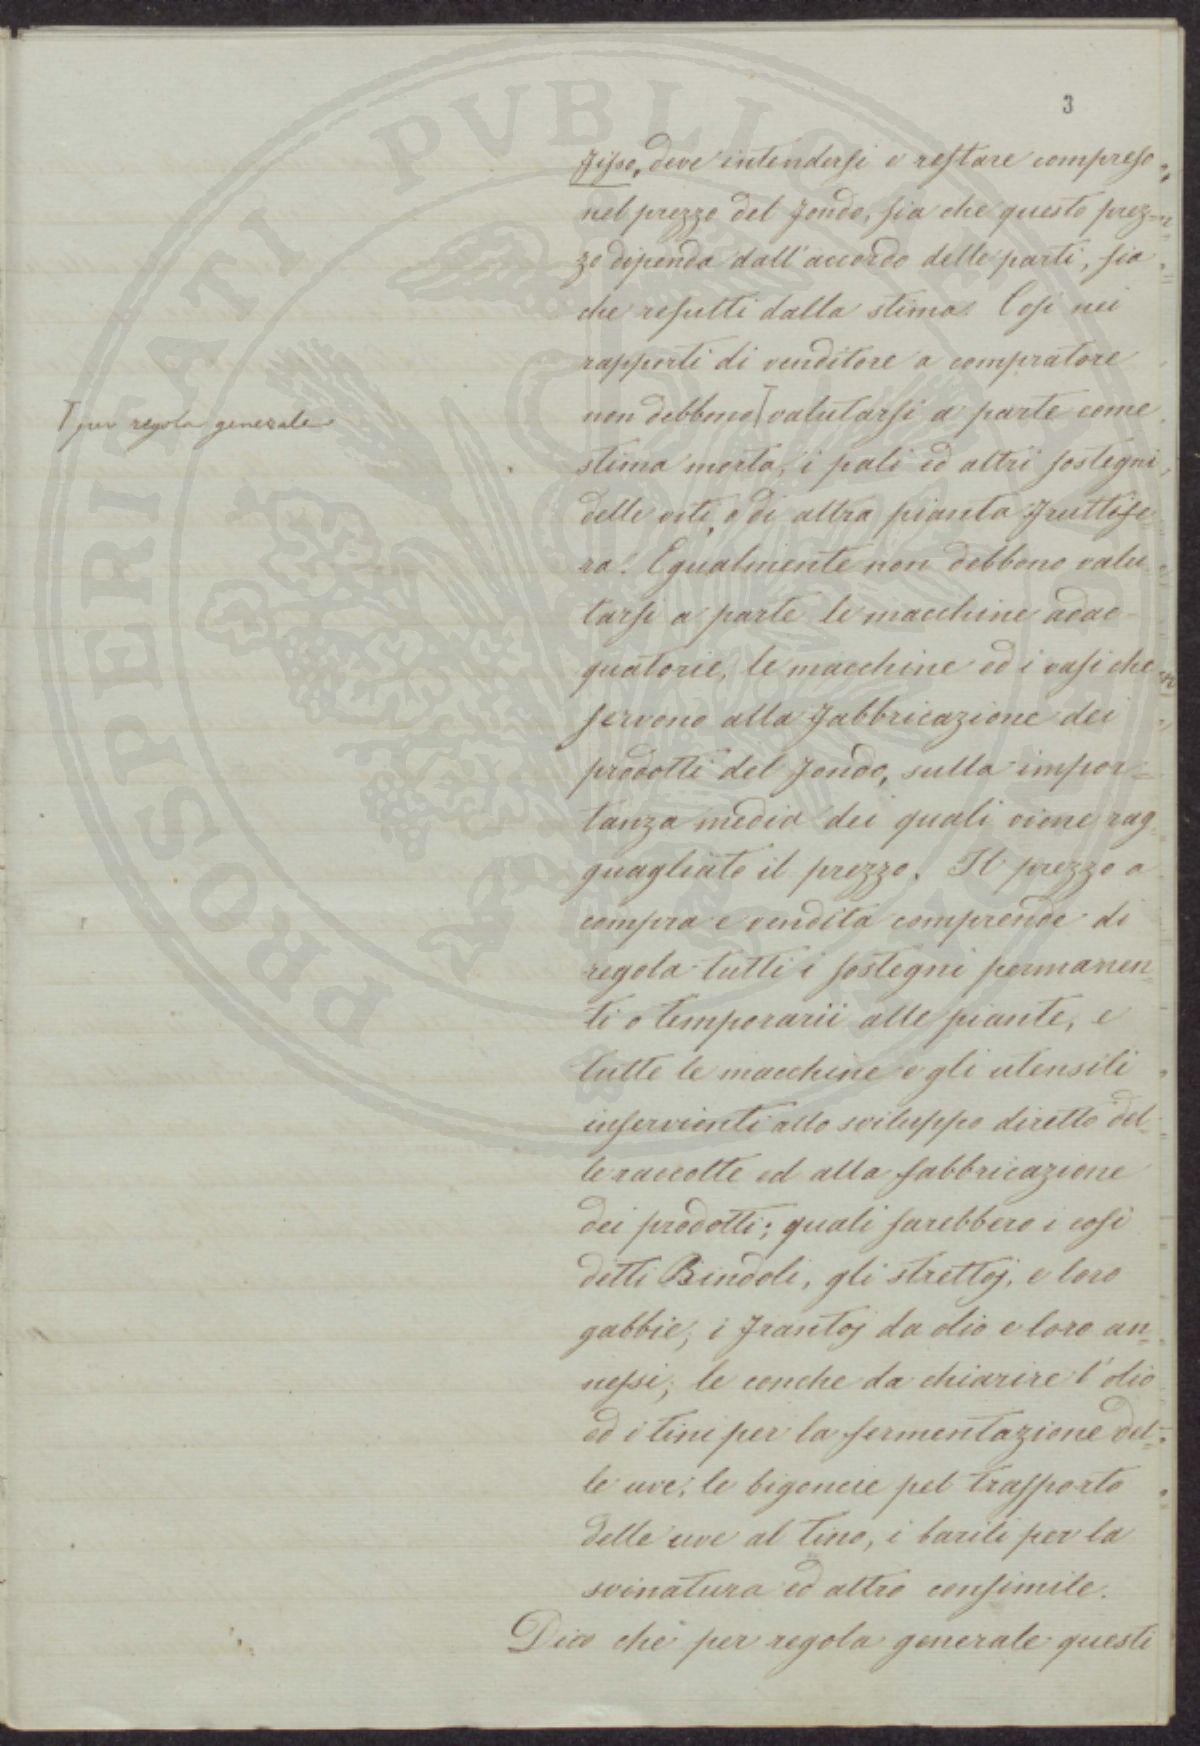 3
fisso, deve intendersi e restare compreso
nel prezzo del fondo, sia che questo prez-
zo dipenda dall'accordo delle parti, sia
che resulti dalla stima. Così nei
rapporti di venditore a compratore
non debbono valutarsi a parte come
per regola generale
stima morta, i pali ed altri sostegni
delle viti, o di altra pianta fruttife
ra. Egualmente non debbono valu
tarsi a parte le macchine adac-
quatorie, le macchine ed i vasi che
servono alla fabbricazione dei
prodotti del fondo, sulla impor-
tanza media dei quali viene rag-
guagliato il prezzo. Il prezzo a
compra e vendita comprende di
regola tutti i sostegni permanen-
ti o temporarii alle piante, e
tutte le macchine e gli utensili
inservienti allo sviluppo diretto del-
le raccolte ed alla fabbricazione
dei prodotti; quali sarebbero i così
detti Bindoli, gli strettoj, e loro
gabbie, i frantoj da olio e loro an-
nessi, le conche da chiarire l'olio
ed i tini per la fermentazione del-
le uve, le bigoncie pel trasporto
delle uve al tino, i barili per la
svinatura ed altro consimile.
Dico che per regola generale questi
PROSPERITATI PVBLICAE